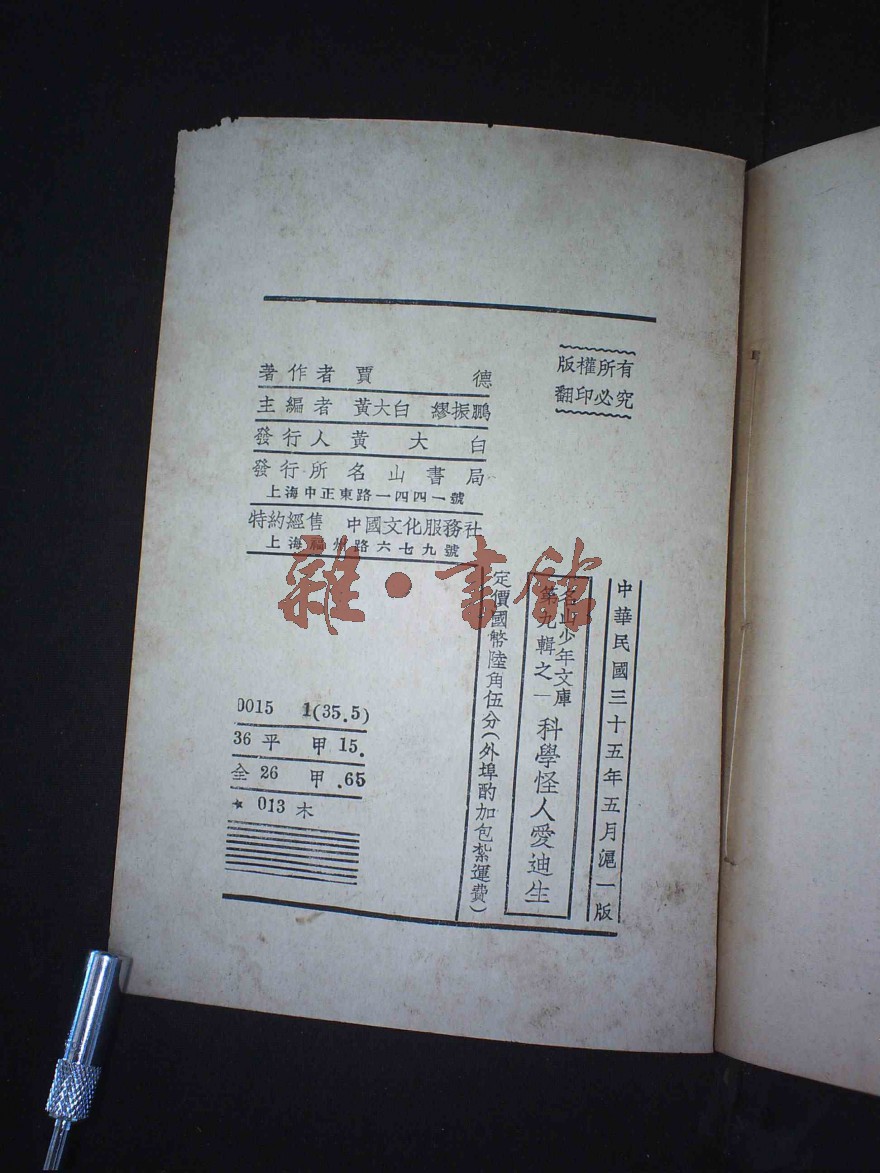 中華民國三十五年五月滬一版
名山少年文庫
第九輯之一
科學怪人愛迪生
定價國幣陸角伍分(外埠酌加包紮運費)
版權所有
翻印必究
著作者 賈 德
主編者 黃大白 繆振鵬
發行人 黃大白
發行所 名山書局
上海中正東路一四四一號
特約經售 中國文化服務社
上海福州路六七九號
0015 1(35.5)
36 平 甲 15.
全 26 甲 .65
★ 013 木
雜·書館